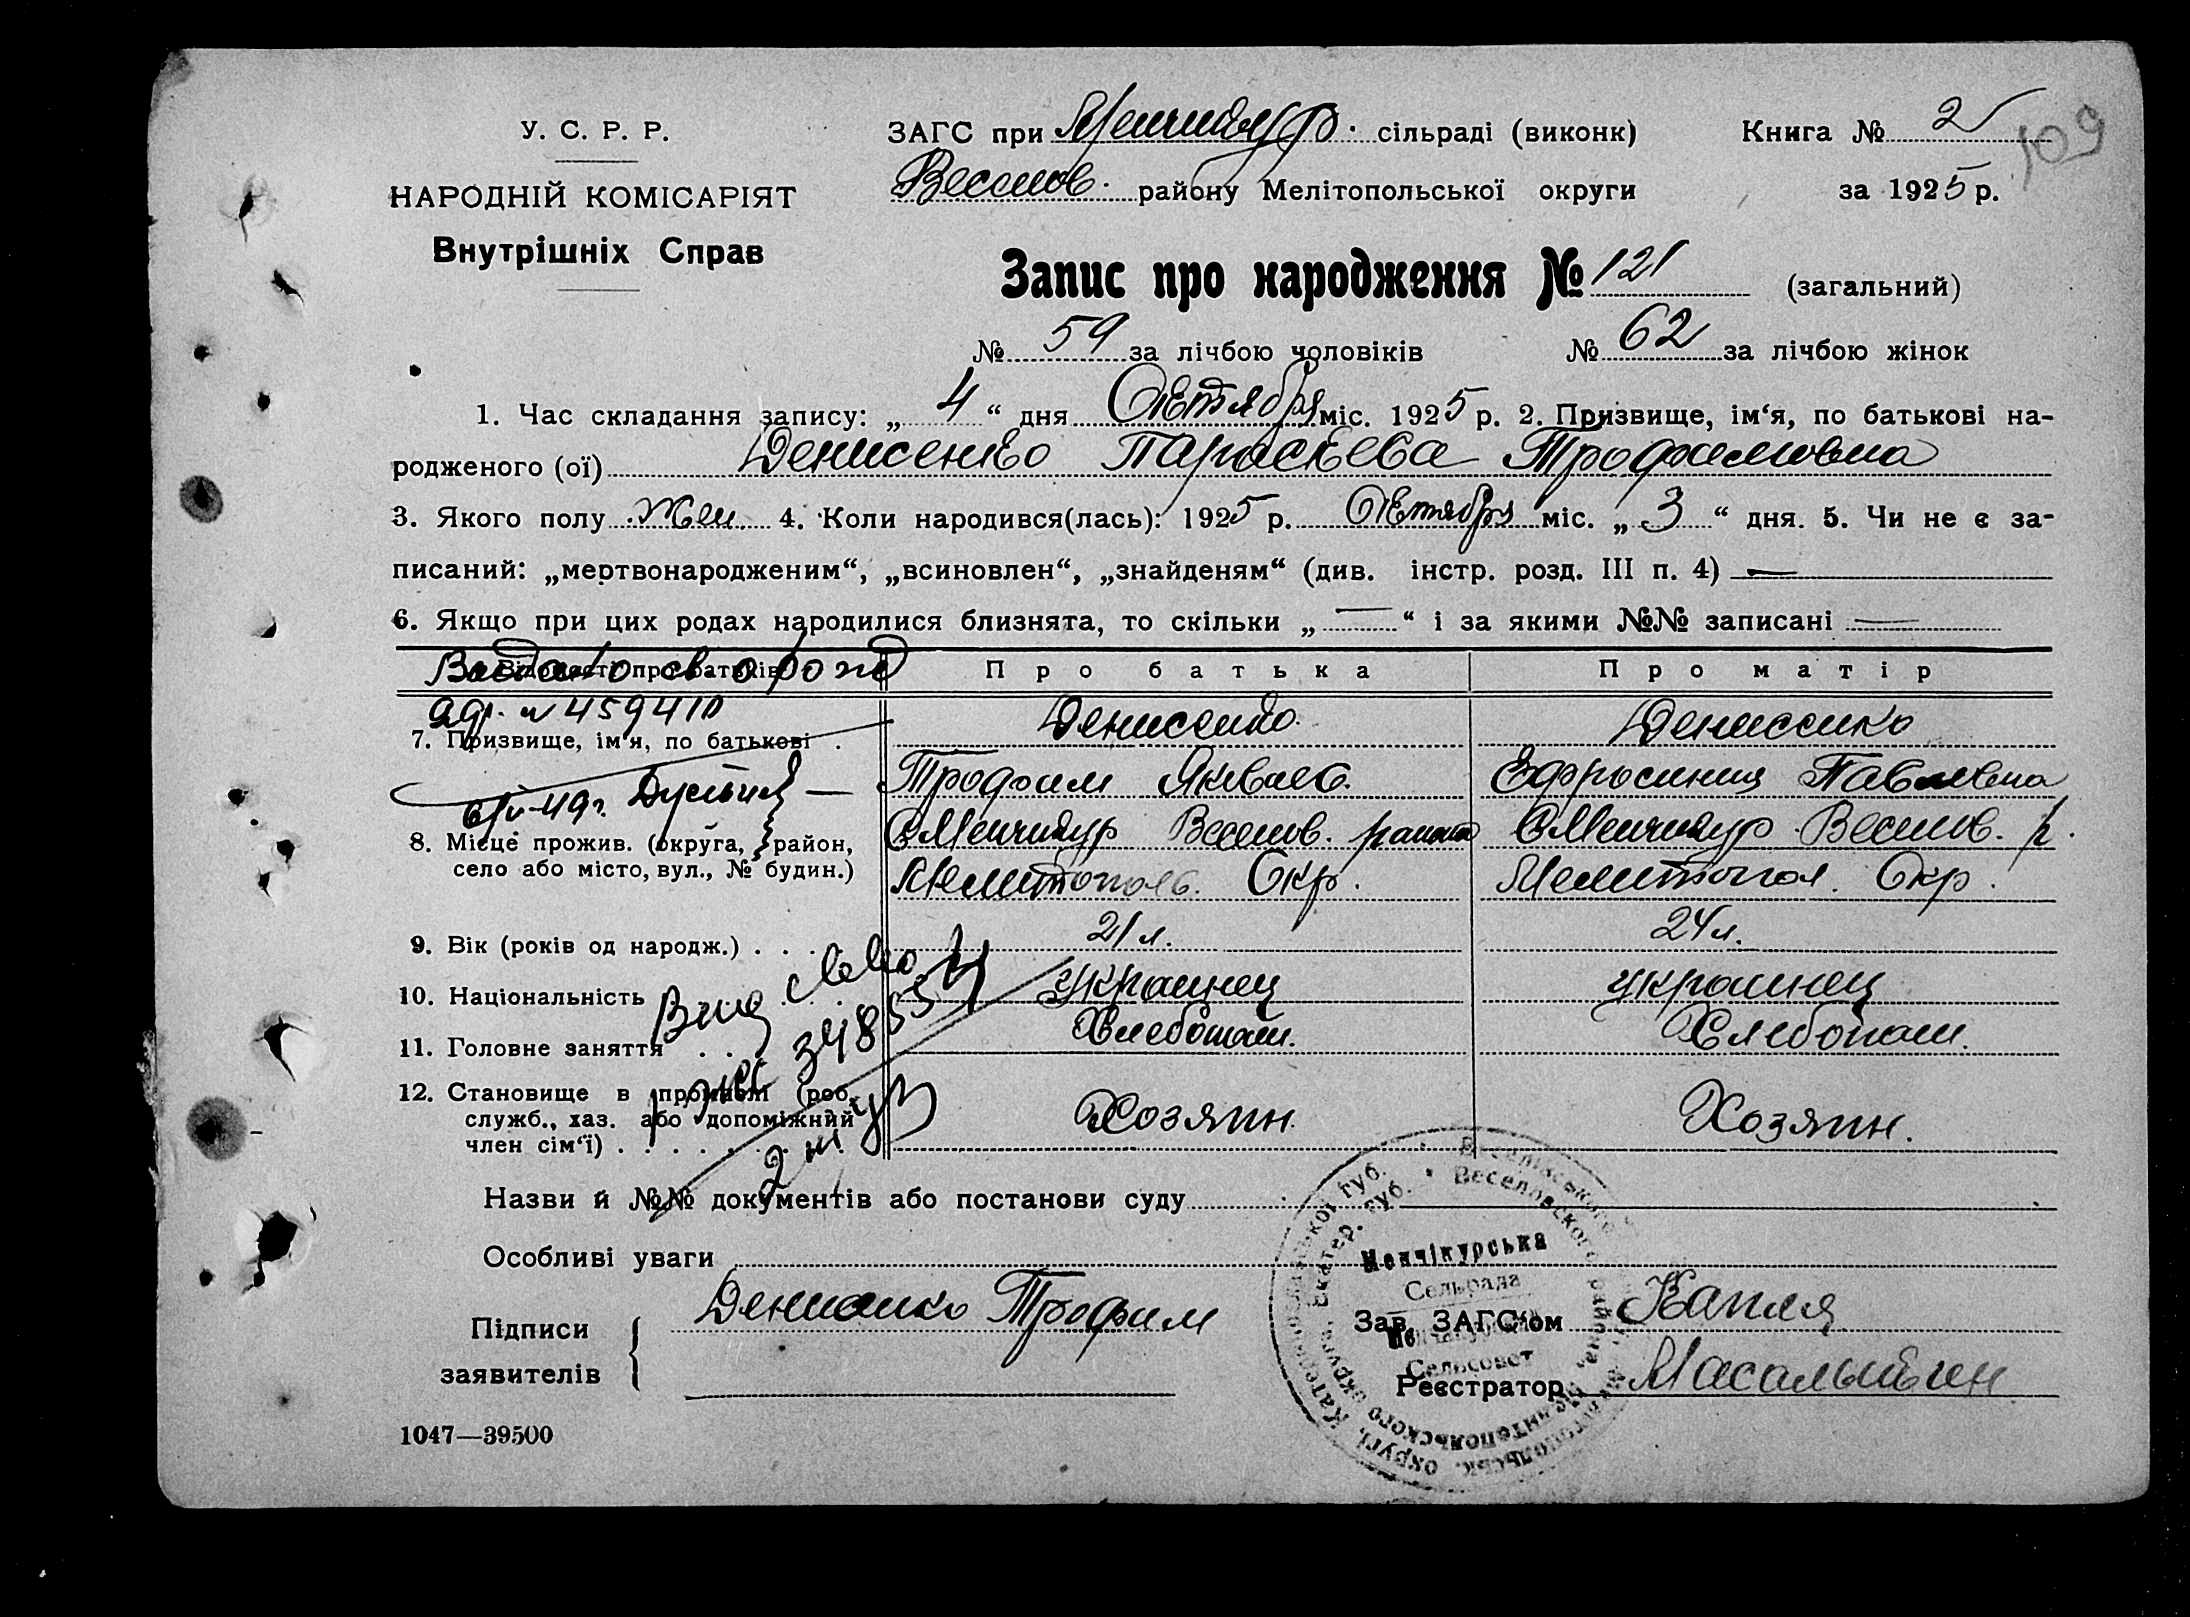 У. С. Р. Р.
НАРОДНІЙ КОМІСАРІЯТ
Внутрішніх Справ
ЗАГС при Менчикур. сільраді (виконк)
Веселов. району Мелітопольської округи
Книга № 2
109
за 1925 р.
Запис про народження № 121 (загальний)
№ 59 за лічбою чоловіків № 62 за лічбою жінок
1. Час складання запису: „ 4 “ дня Октября міс. 1925 р. 2. Призвище, ім‘я, по батькові на-
родженого (ої) Денисенко Параскева Трофимовна
3. Якого полу жен 4. Коли народився(лась): 1925 р. Октября міс. „ 3 “ дня. 5. Чи не є за-
писаний: „мертвонародженим“, „всиновлен“, „знайденям“ (див. інстр. розд. III п. 4) —
6. Якщо при цих родах народилися близнята, то скільки „ — “ і за якими №№ записані —
Відомості про батьків Про батька Про матір
св. о рожд
459410
7. Призвище, ім‘я, по батькові . Денисенко Денисенко
Трофим Яковлев. Ефросиния Павловна
49 г.
8. Місце прожив. (округа, район, С Менчикур Веселов. района С Менчикур Веселов. р.
село або місто, вул., № будин.) Мелитополь. Окр. Мелитопол. Окр.
9. Вік (років од народж.) . . . 21 л. 24 л.
10. Національність украинец украинец
11. Головне заняття Хлебопаш. Хлебопаш.
12. Становище в промислі (роб., Хозяин. Хозяин.
служб., хаз. або допоміжний
член сім‘ї) . . . . . .
Назви й №№ документів або постанови суду
Особливі уваги
Підписи
заявителів
Денисенко Трофим
Зав. ЗАГС‘ом Капля
Реєстратор
Менчікурська
Сельрада
Сельсовет
Веселовского района, Мелитопольского округа, Екатер. губ.
1047—39500